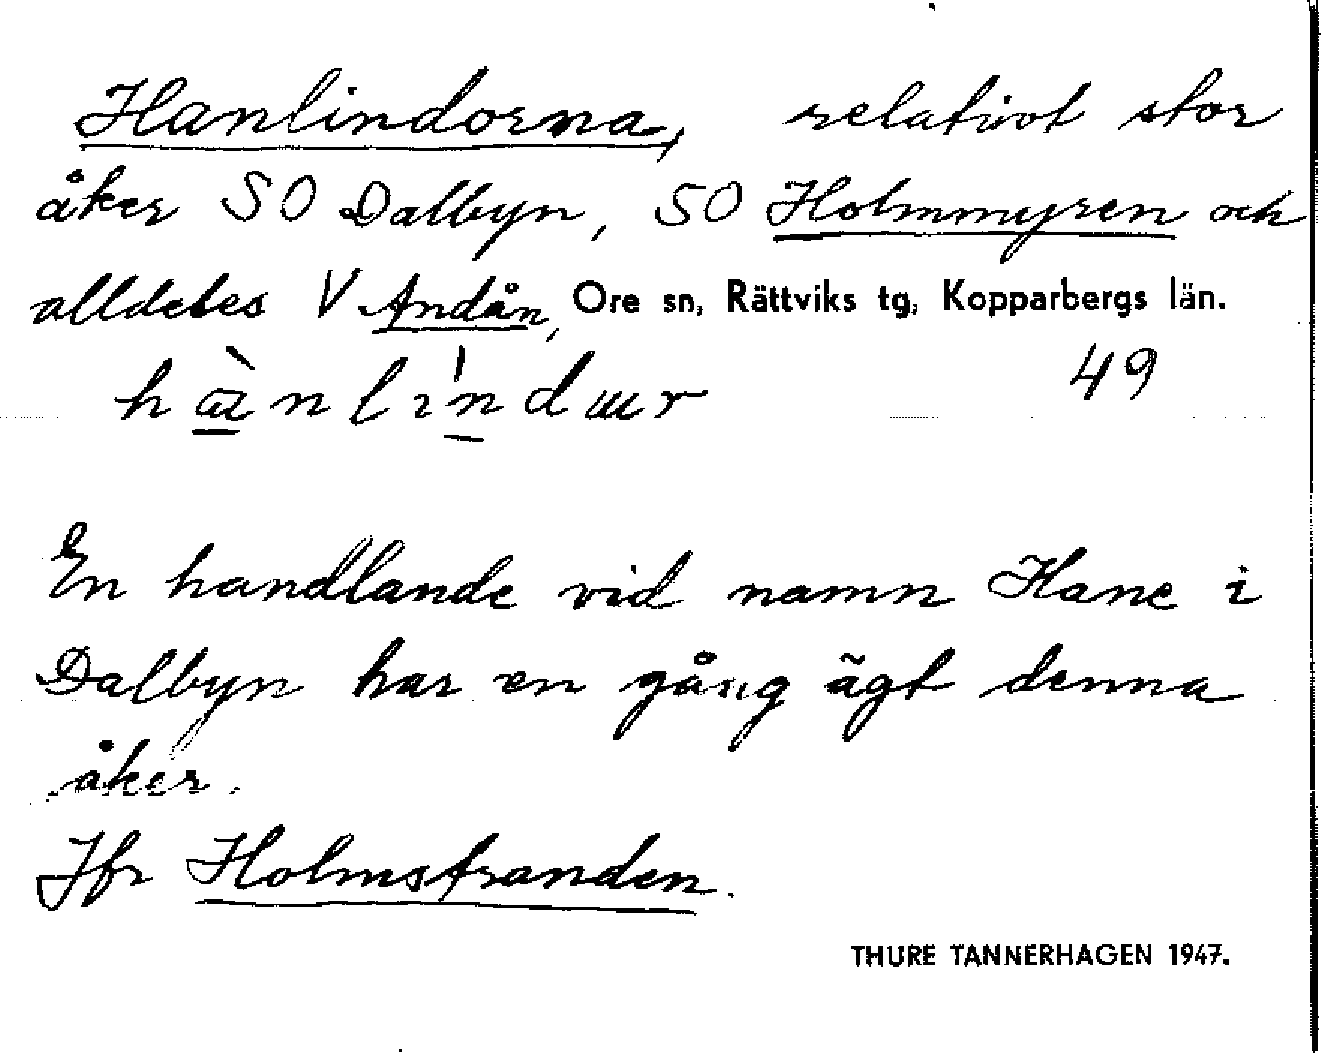 Hanlindorna, relativt stor
åker SO Dalbyn, SO Holmmyren och
alldeles V Andån, Ore sn, Rättviks tg, Kopparbergs län.
49
En handlande vid namn Hane i
Dalbyn har en gång ägt denna
åker.
Jfr Holmstranden.
THURE TANNERHAGEN 1947.